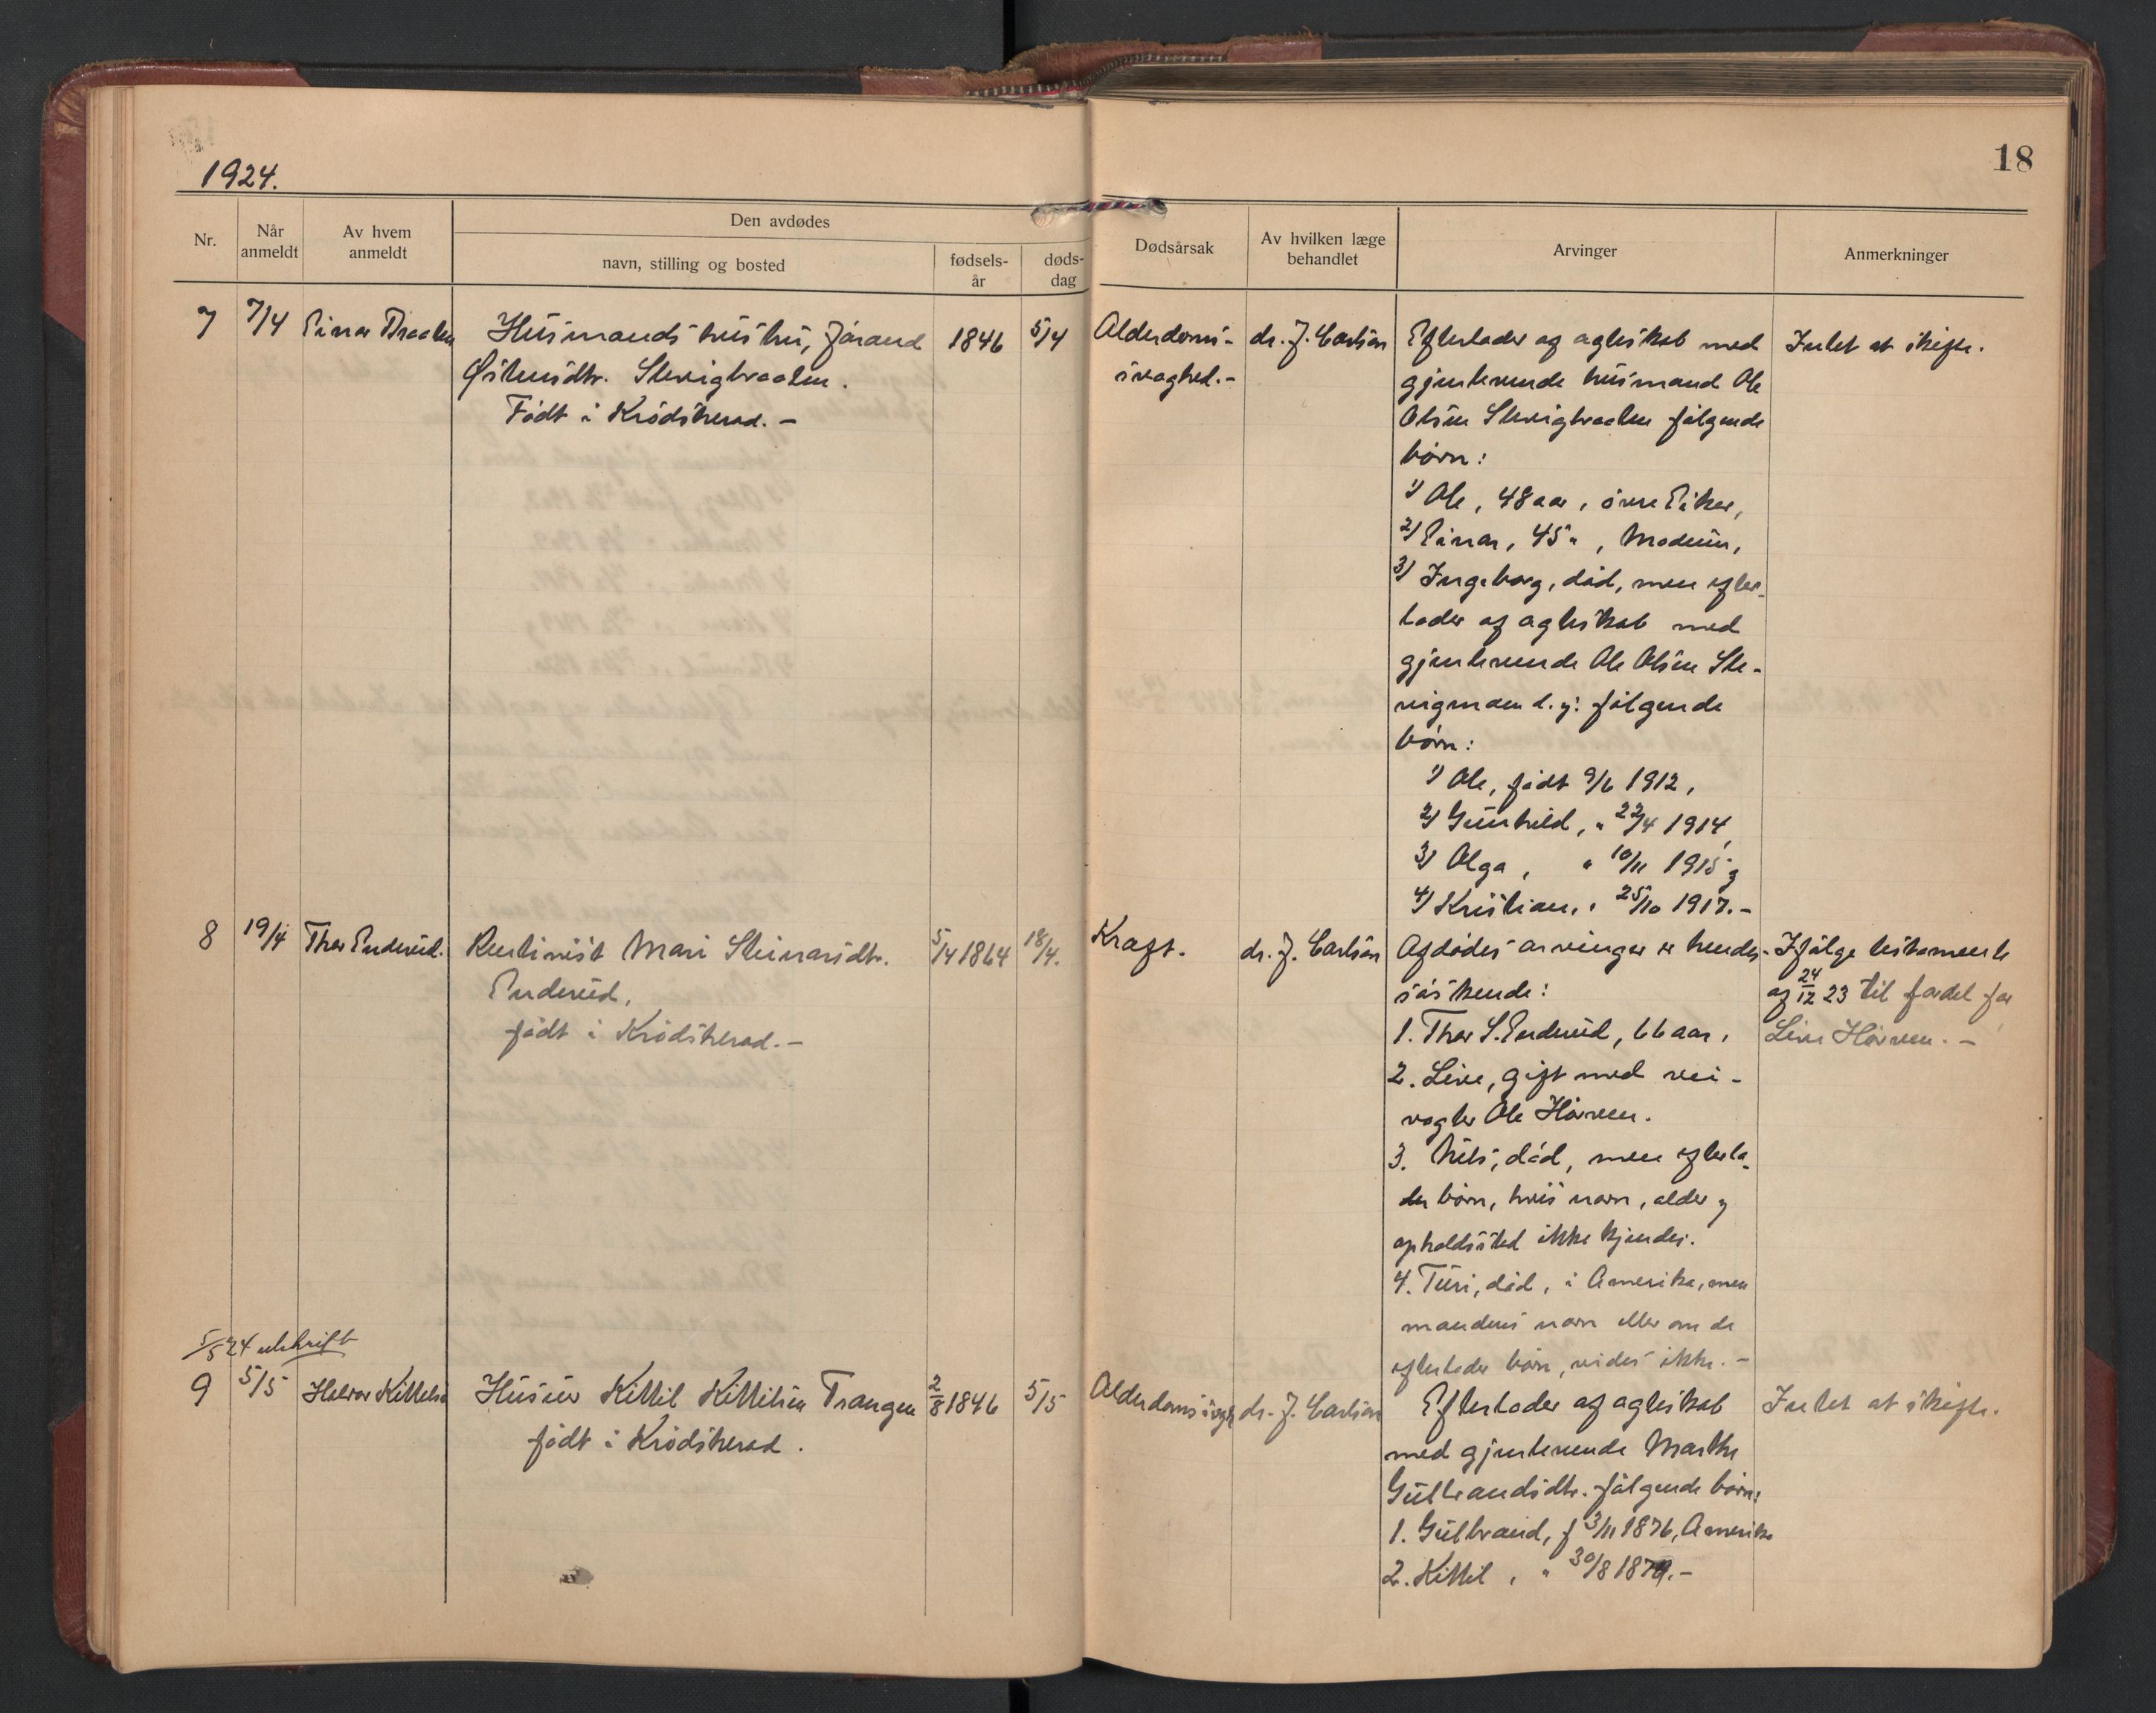 1924.
18
Nr.
Når anmeldt
Av hvem anmeldt
Den avdødes
navn, stilling og bosted
fødsels-år
døds-dag
Dødsårsak
Av hvilken læge behandlet
Arvinger
Anmerkninger
7
7/4
Einar Braaten
Husmandshustru, Jørand
Østensdtr. Slevigbraaten.
Født i Krødsherad. -
1846
5/4
Alderdoms-
svaghed. -
dr. J. Carlsen
Efterlader af ægteskab med
gjenlevende husmand Ole
Olsen Slevigbraaten følgende
børn:
1) Ole, 48 aar, øvre Eiker,
2) Einar, 45 " , Modum,
3) Ingeborg, død, men efter-
lader af ægteskab med
gjenlevende Ole Olsen Sle-
vigmoen d.y. følgende
børn:
1) Ole, født 9/6 1912,
2) Gunhild, " 22/4 1914,
3) Olga, " 10/11 1915 og
4) Kristian, " 25/10 1917. -
Intet at skifte.
8
19/4
Thor Enderud.
Rentenist Mari Steinarsdtr.
Enderud,
født i Krødsherad. -
5/4 1864
18/4.
Kræft.
dr. J. Carlsen
Afdødes arvinger er hendes
søskende:
1. Thor S. Enderud, 66 aar,
2. Live, gift med vei-
vogter Ole Hørven.
3. Nils, død, men efterla-
der børn, hvis navn, alder og
opholdssted ikke kjendes.
4. Turi, død, i Amerika, men
mandens navn eller om de
efterlader børn, vides ikke. -
Ifølge testamente
af 24/12 23 til fordel for
Live Hørven. -
5/5 24 utskrift
9
5/5
Halvor Kittelsen
Husier Kittil Kittilsen Trangen
født i Krødsherad.
2/8 1846
5/5
Alderdomssvagh
dr. J. Carlsen
Efterlader af ægteskab
med gjenlevende Marthe
Gulbrandsdtr. følgende børn:
1. Gulbrand, f 3/11 1876, Amerika
2. Kittil, " 30/8 1879. -
Intet at skifte.